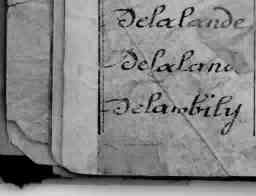 Delalande
Delaland
Delambily